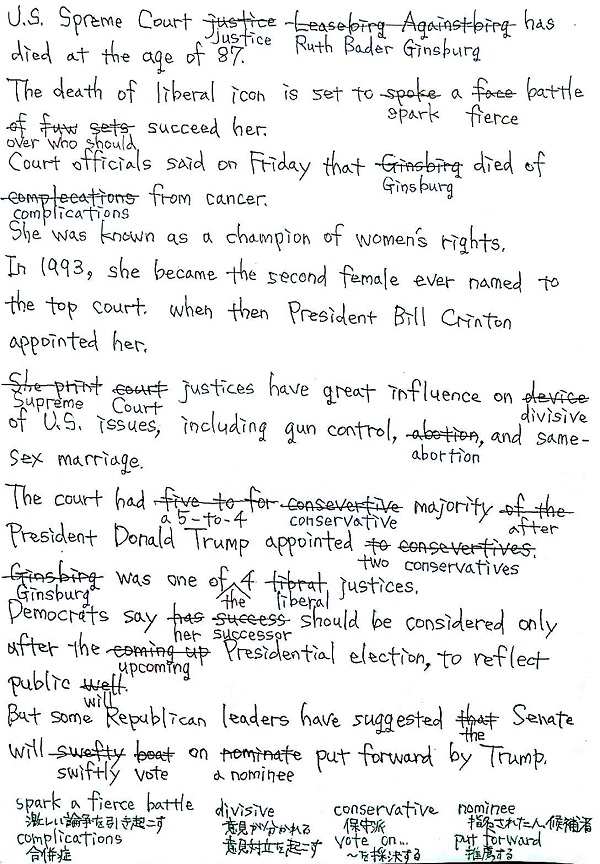 U.S. Spreme Court justice Leasebirg Againstbirg has
justice Ruth Bader Ginsburg
died at the age of 87.
The death of liberal icon is set to spoke a face battle
spark fierce
of fuw sets succeed her.
over who should
Court officials said on Friday that Ginsbirg died of
Ginsburg
complecations from cancer.
complications
She was known as a champion of women's rights.
In 1993, she became the second female ever named to
the top court. when then President Bill Crinton
appointed her.
She print court justices have great influence on device
Supreme Court divisive
of U.S. issues, including gun control, abotion, and same-
abortion
sex marriage.
The court had five to for consevertive majority of the
a 5-to-4 conservative after
President Donald Trump appointed to consevertives.
two conservatives
Ginsbirg was one of 4 libral justices.
Ginsburg the liberal
Democrats say has success should be considered only
her successor
after the coming up Presidential election, to reflect
upcoming
public well.
will
But some Republican leaders have suggested that Senate
the
will swefty boat on nominate put forward by Trump.
swiftly vote a nominee
spark a fierce battle divisive conservative nominee
激しい論争を引き起こす 意見が分かれる 保守派 指名された人、候補者
complications 意見対立を起こす vote on... put forward
合併症 ～を採決する 推薦する